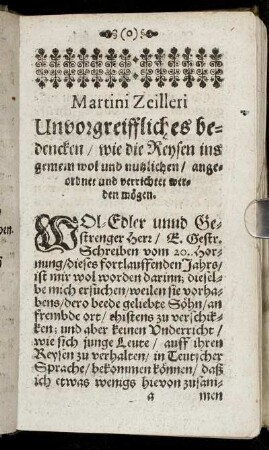 (o)
Martini Zeilleri
Unvorgreiffliches be-
dencken / wie die Reysen ins
gemein wol und nutzlichen / ange-
ordnet und verrichtet wer-
den mögen.
WOl-Edler unnd Ge-
strenger Herr / E. Gestr.
Schreiben vom 20. Hor-
nung / dieses fortlauffenden Jahrs /
ist mir wol worden darinn, diesel-
be mich ersuchen / weilen sie vorha-
bens / dero beede geliebte Söhn / an
frembde ort / ehistens zu verschik-
ken; und aber keinen Underricht /
wie sich junge Leute / auff ihren
Reysen zu verhalten / in Teutscher
Sprache / bekommen können / daß
ich etwas wenigs hievon zusam-
a men